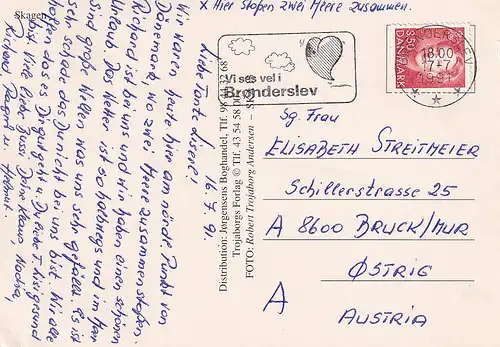 Skagen
x Hier stoßen zwei Meere zusammen.
16.7.91.
Liebe Tante Liserl!
Wir waren heute hier am nördl. Punkt von
Dänemark, wo zwei Meere zusammenstoßen.
Richard ist bei uns und wir haben einen schönen
Urlaub. Das Wetter ist so halbwegs und im Meer
sind große Wellen was uns sehr gefällt. Es ist
sehr schade das Du nicht bei uns bist. Wir alle
hoffen das es Dir gut geht u. Du bist gesund
bist. Viele liebe Bussi Deine Klaus, Nadja,
Richard, Dagmar u. Helmut.
Distribution: Jørgensens Boghandel, Tlf. 98 44 22 68
Trojaborgs Forlag © Tlf. 43 54 58 00
FOTO: Robert Trojaborg Andersen
Vi ses vel i
Brønderslev
3.50
DANMARK
18.00
17.-7.
1991
Sg. Frau
ELISABETH STREITMEIER
Schillerstrasse 25
A 8600 BRUCK/MUR
ØSTRIG
A
AUSTRIA